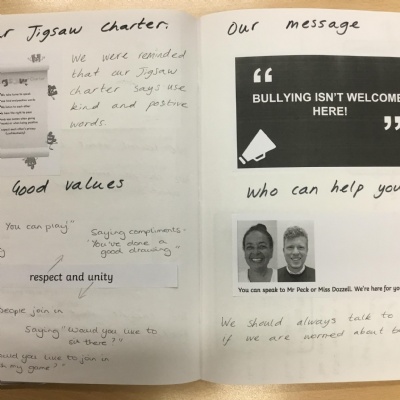 ur Jigsaw Charter.
We were reminded
that our Jigsaw
charter says use
kind and positive
words.
Good values
You can play"
Saying compliments-
"You've done a
good drawing"
respect and unity
people join in
Saying "Would you like to
sit there?"
ould you like to join in
my game?"
Our message
“
BULLYING ISN'T WELCOME
HERE!
”
Who can help you
You can speak to Mr Peck or Miss Dazzell. We're here for yo
We should always talk to
if we are worried about b